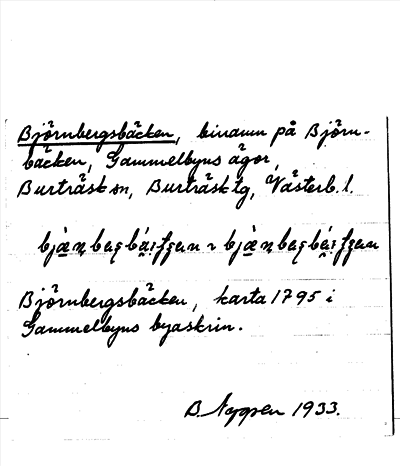 Björnbergsbäcken, binamn på Björn-
bäcken, Gammelbyns ägor,
Burträsk sn, Burträsk tg, Västerb. l.
Björnbergsbäcken, karta 1795 i
Gammelbyns byaskrin.
B. Nygren 1933.